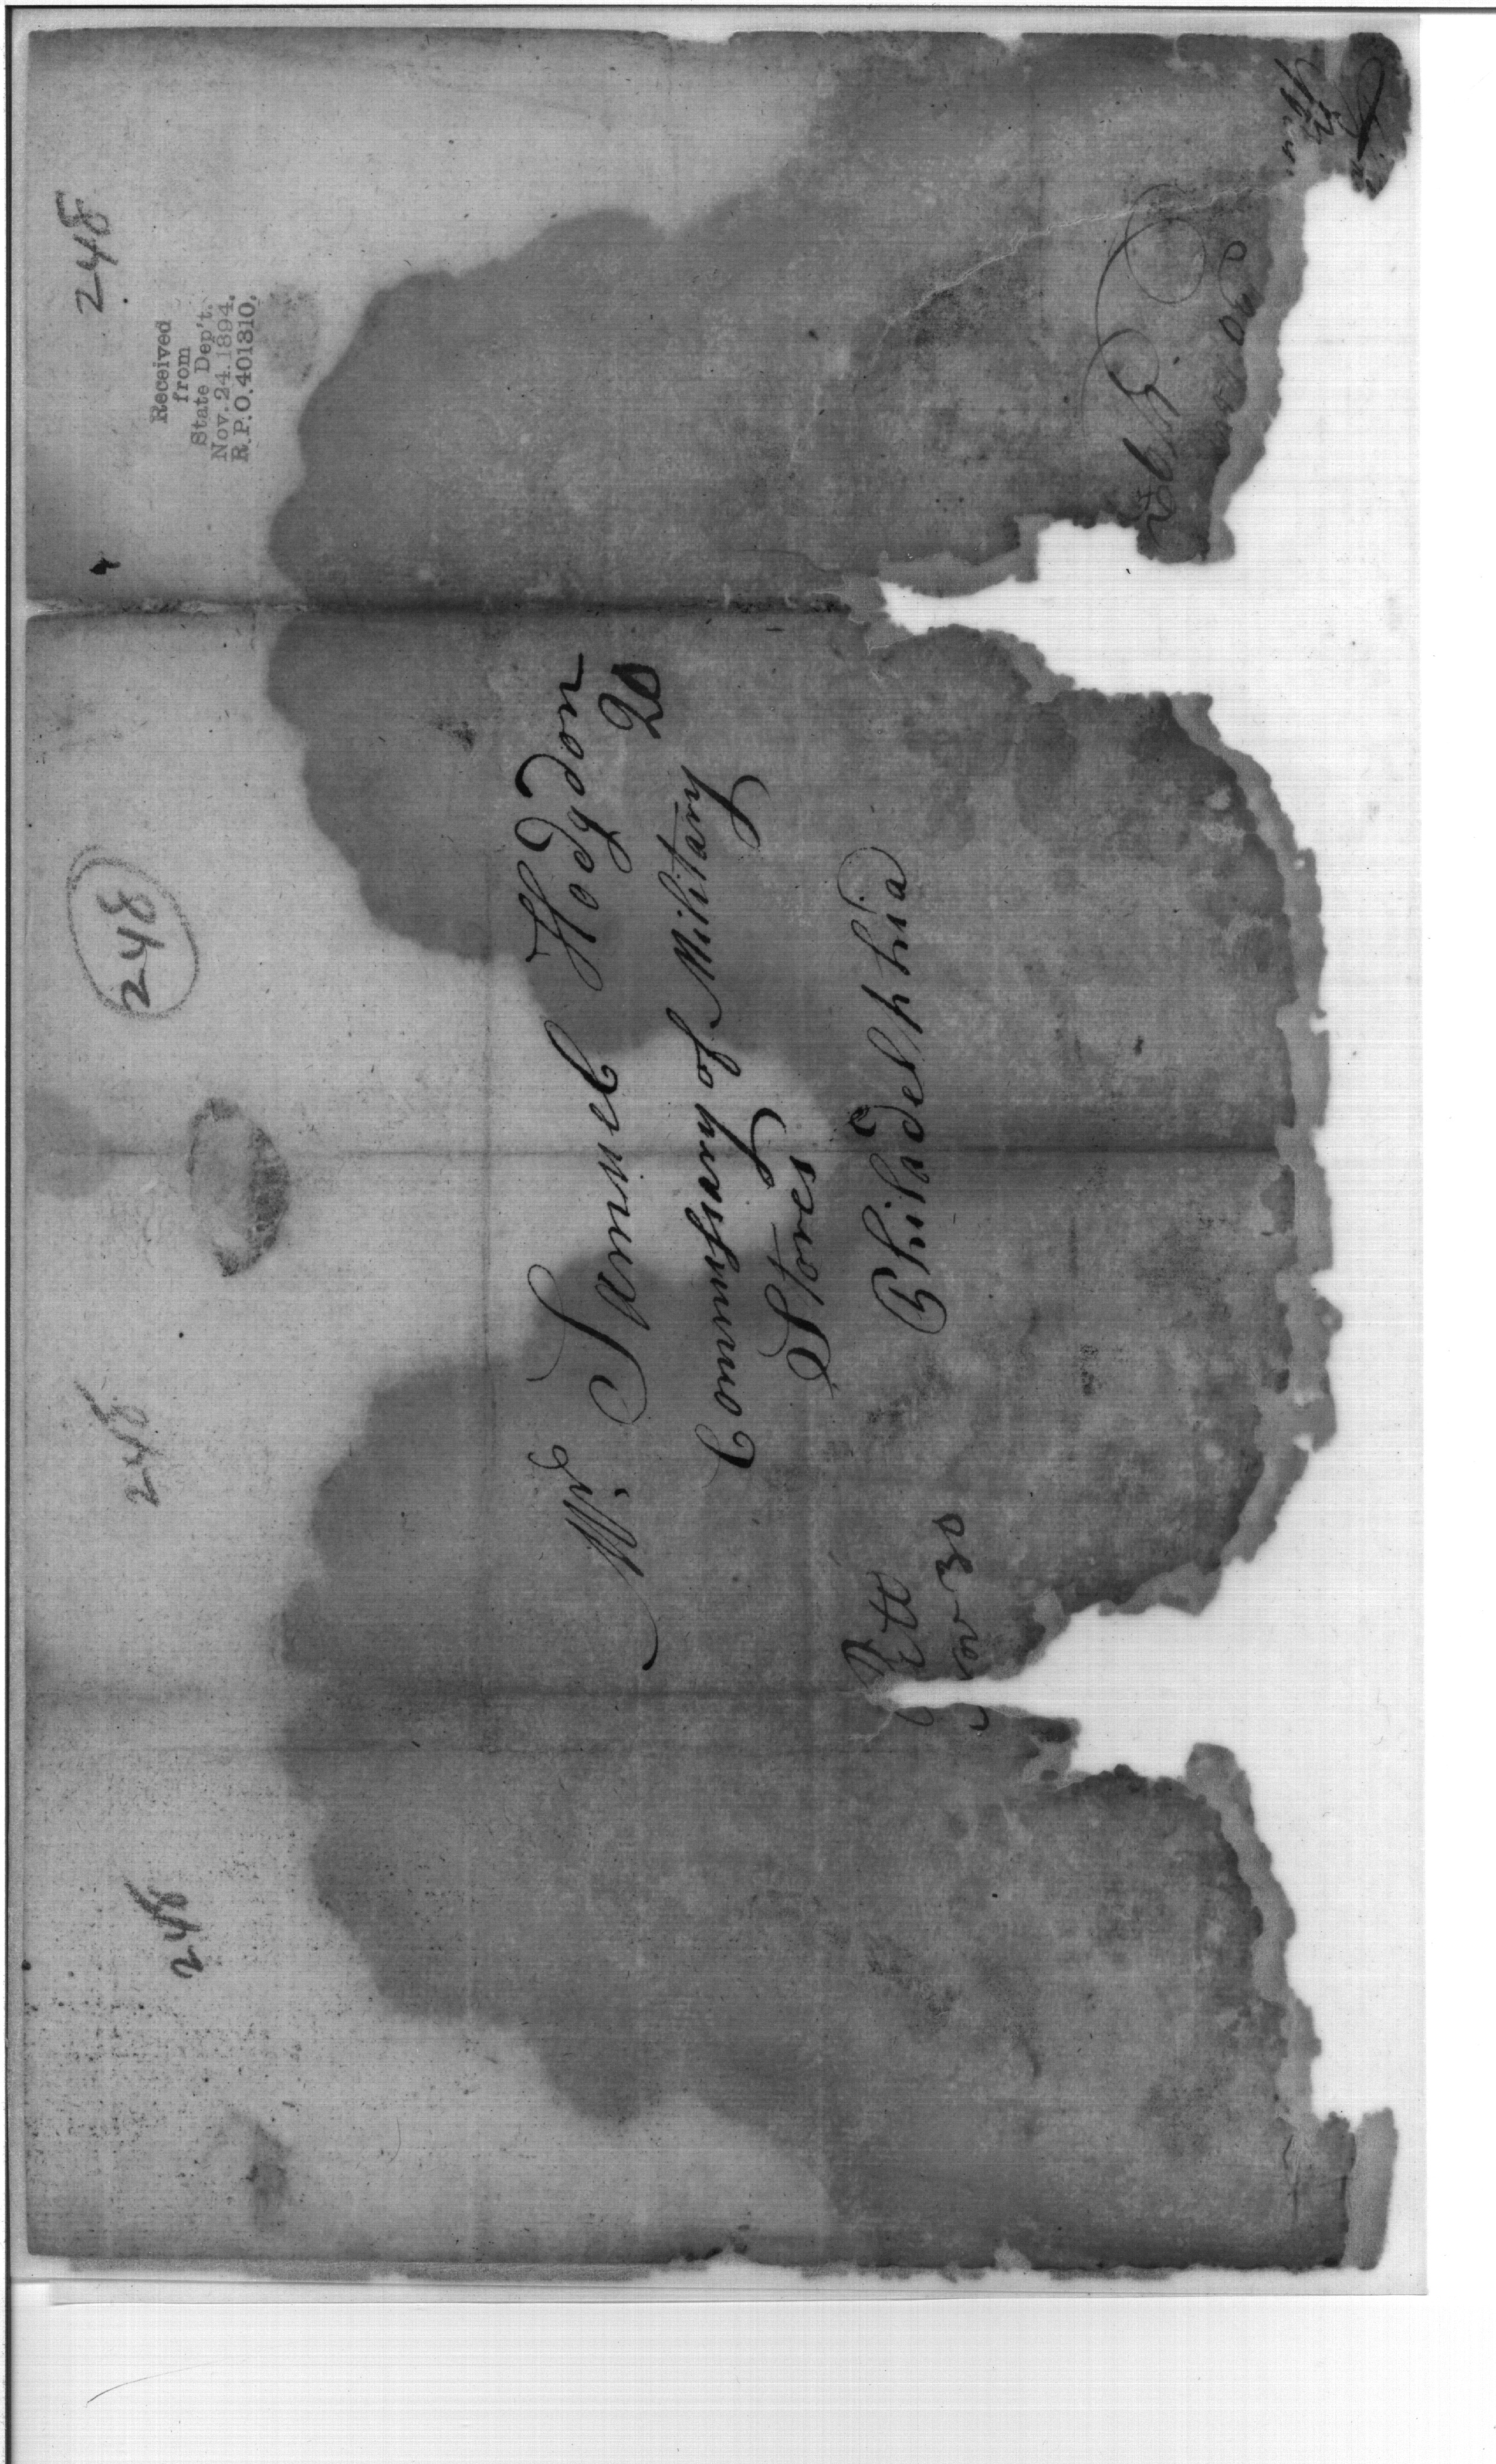 248
248
248
248
Received
from
State Dep't.
Nov. 24. 1894.
R.P.O. 401310.
Mr. Samuel Hodgdon
20
Commissary of Military
Stores
Philadelphia
30